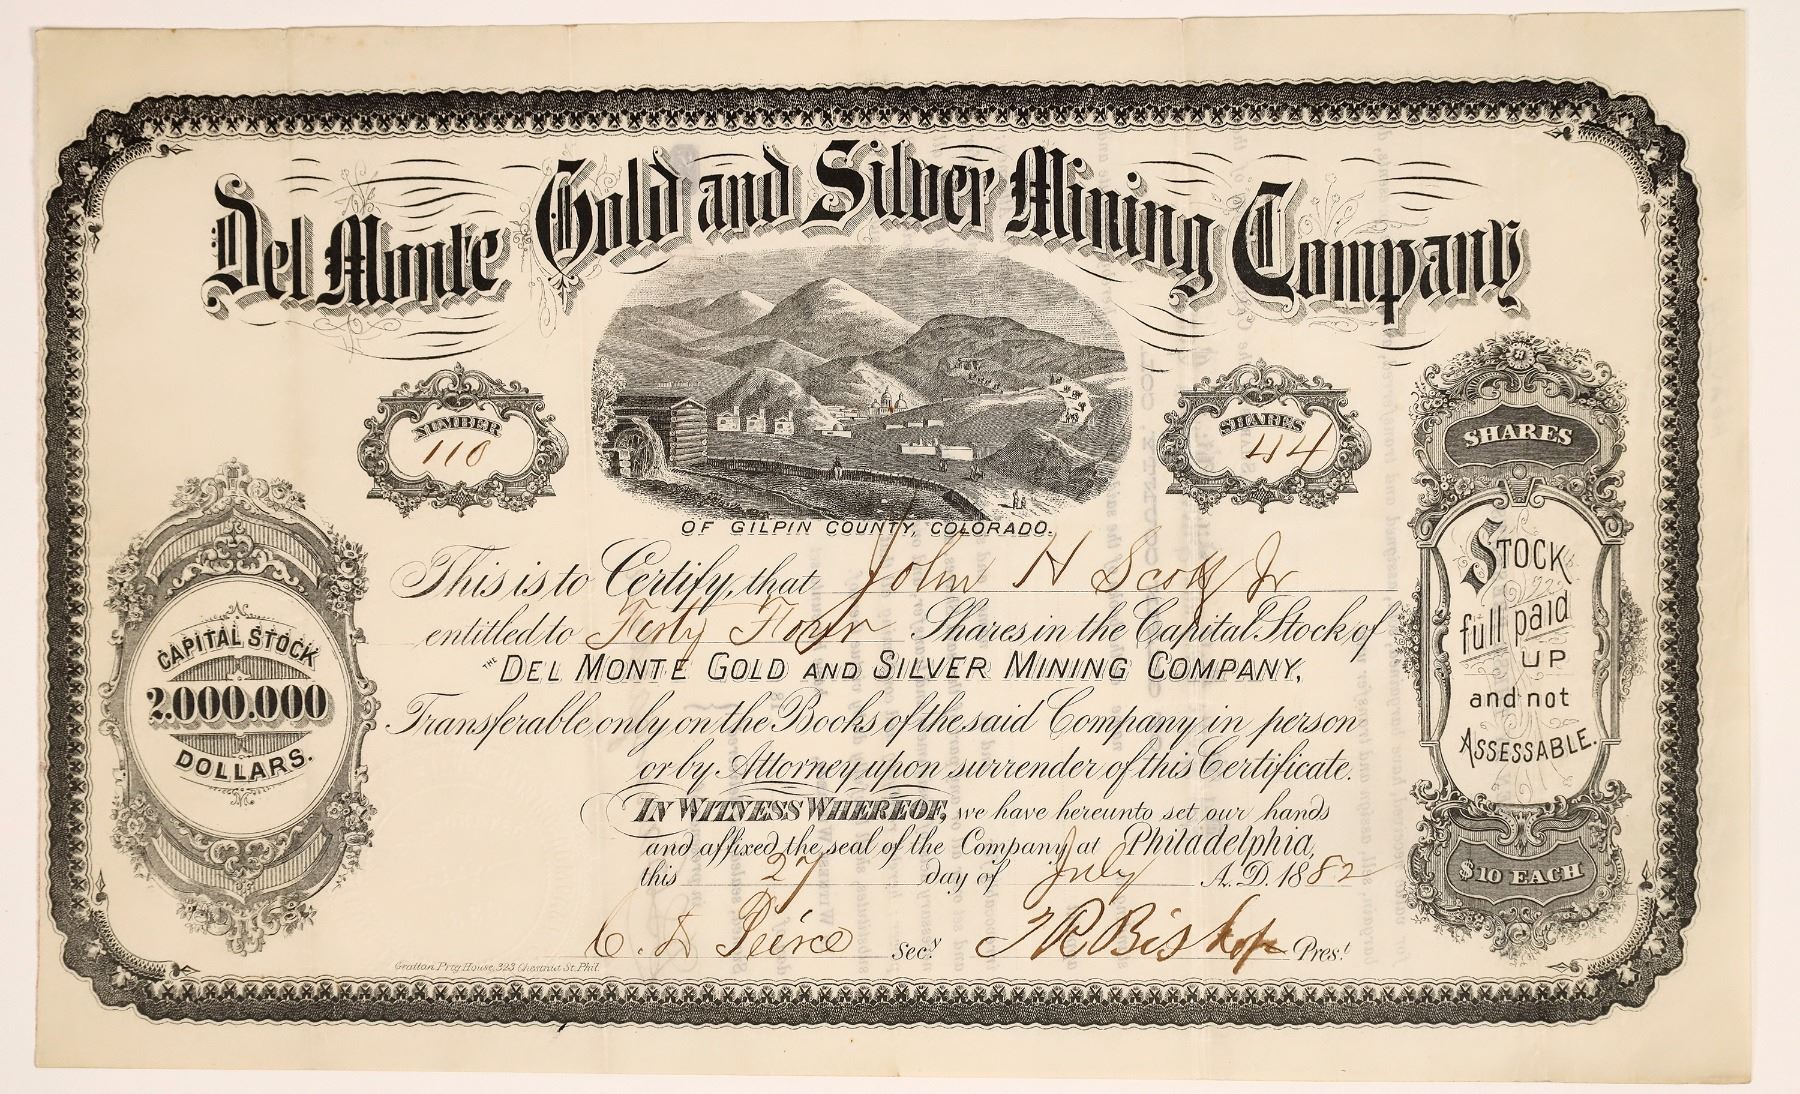 Del Monte Gold and Silver Mining Company
OF GILPIN COUNTY, COLORADO.
NUMBER
110
SHARES
44
This is to Certify, that John H Scott Jr
entitled to Forty Four Shares in the Capital Stock of
THE DEL MONTE GOLD AND SILVER MINING COMPANY,
Transferable only on the Books of the said Company in person
or by Attorney upon surrender of this Certificate.
IN WITNESS WHEREOF, we have hereunto set our hands
and affixed the seal of the Company at Philadelphia,
this 27 day of July A.D. 1882
Peirce Secy
Bishop Prest
Grattan Prtg House, 323 Chestnut St. Phil.
CAPITAL STOCK
2.000.000
DOLLARS.
SHARES
STOCK
full paid
UP
and not
ASSESSABLE.
$10 EACH